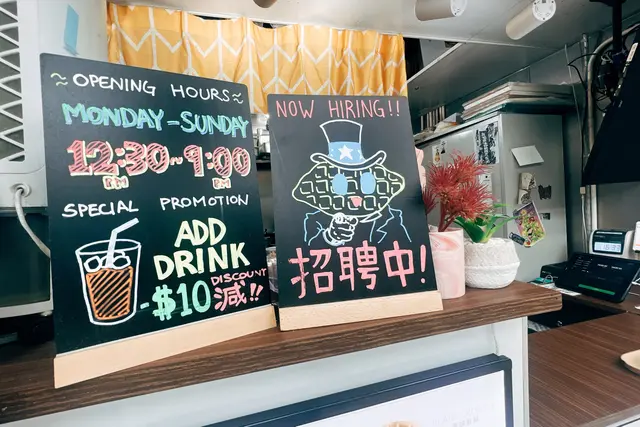 ~ OPENING HOURS ~
MONDAY - SUNDAY
12:30 ~ 9:00
PM PM
SPECIAL PROMOTION
ADD
DRINK
DISCOUNT
-$10 減!!
NOW HIRING!!
招聘中!